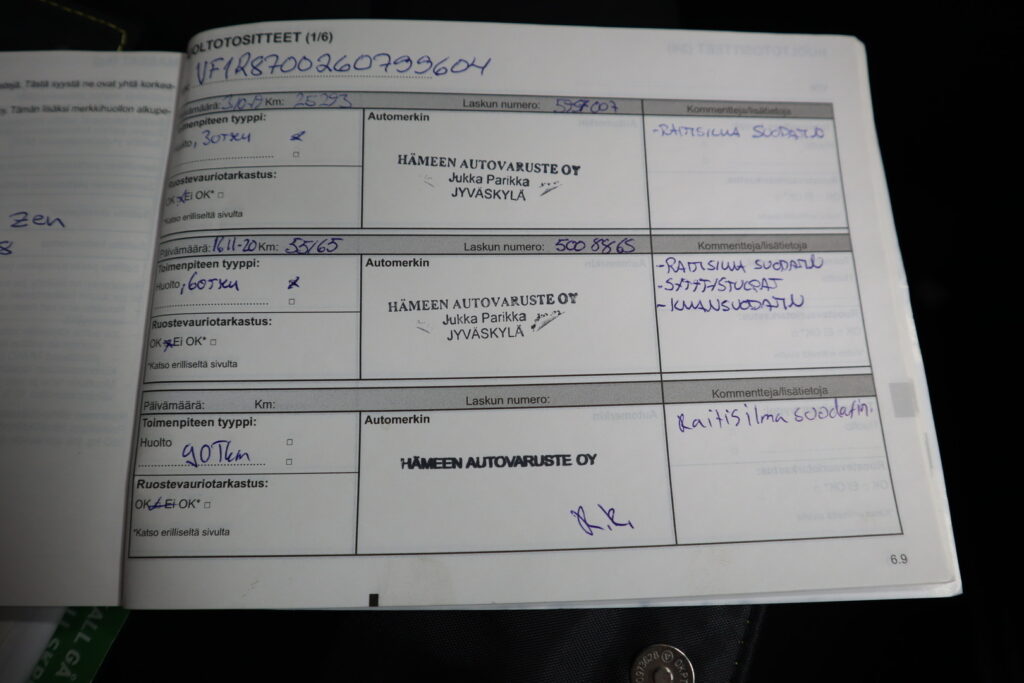 OLTOTOSITTEET (1/6)
VF1R8700260799604
Tästä syystä ne ovat yhtä korkea-
Tämän lisäksi merkkihuollon alkupe-
Zen
Km: 25293 Laskun numero: Kommentteja/lisätietoja
Toimenpiteen tyyppi: Automerkin -RAITISILMA SUODATIN
Huolto, 30TKM
HÄMEEN AUTOVARUSTE OY
Jukka Parikka
JYVÄSKYLÄ
Ruostevauriotarkastus:
OK Ei OK*
*Katso erilliseltä sivulta
Päivämäärä: 16.11-20 Km: 55165 Laskun numero: 5008865 Kommentteja/lisätietoja
Toimenpiteen tyyppi: Automerkin -RAITISILMA SUODATIN
Huolto, 60TKM
HÄMEEN AUTOVARUSTE OY
Jukka Parikka
JYVÄSKYLÄ
Ruostevauriotarkastus:
OK Ei OK*
*Katso erilliseltä sivulta
Päivämäärä: Km: Laskun numero: Kommentteja/lisätietoja
Toimenpiteen tyyppi: Automerkin Raitisilma suodatin.
Huolto
90Tkm
HÄMEEN AUTOVARUSTE OY
Ruostevauriotarkastus:
OK Ei OK*
*Katso erilliseltä sivulta
6.9